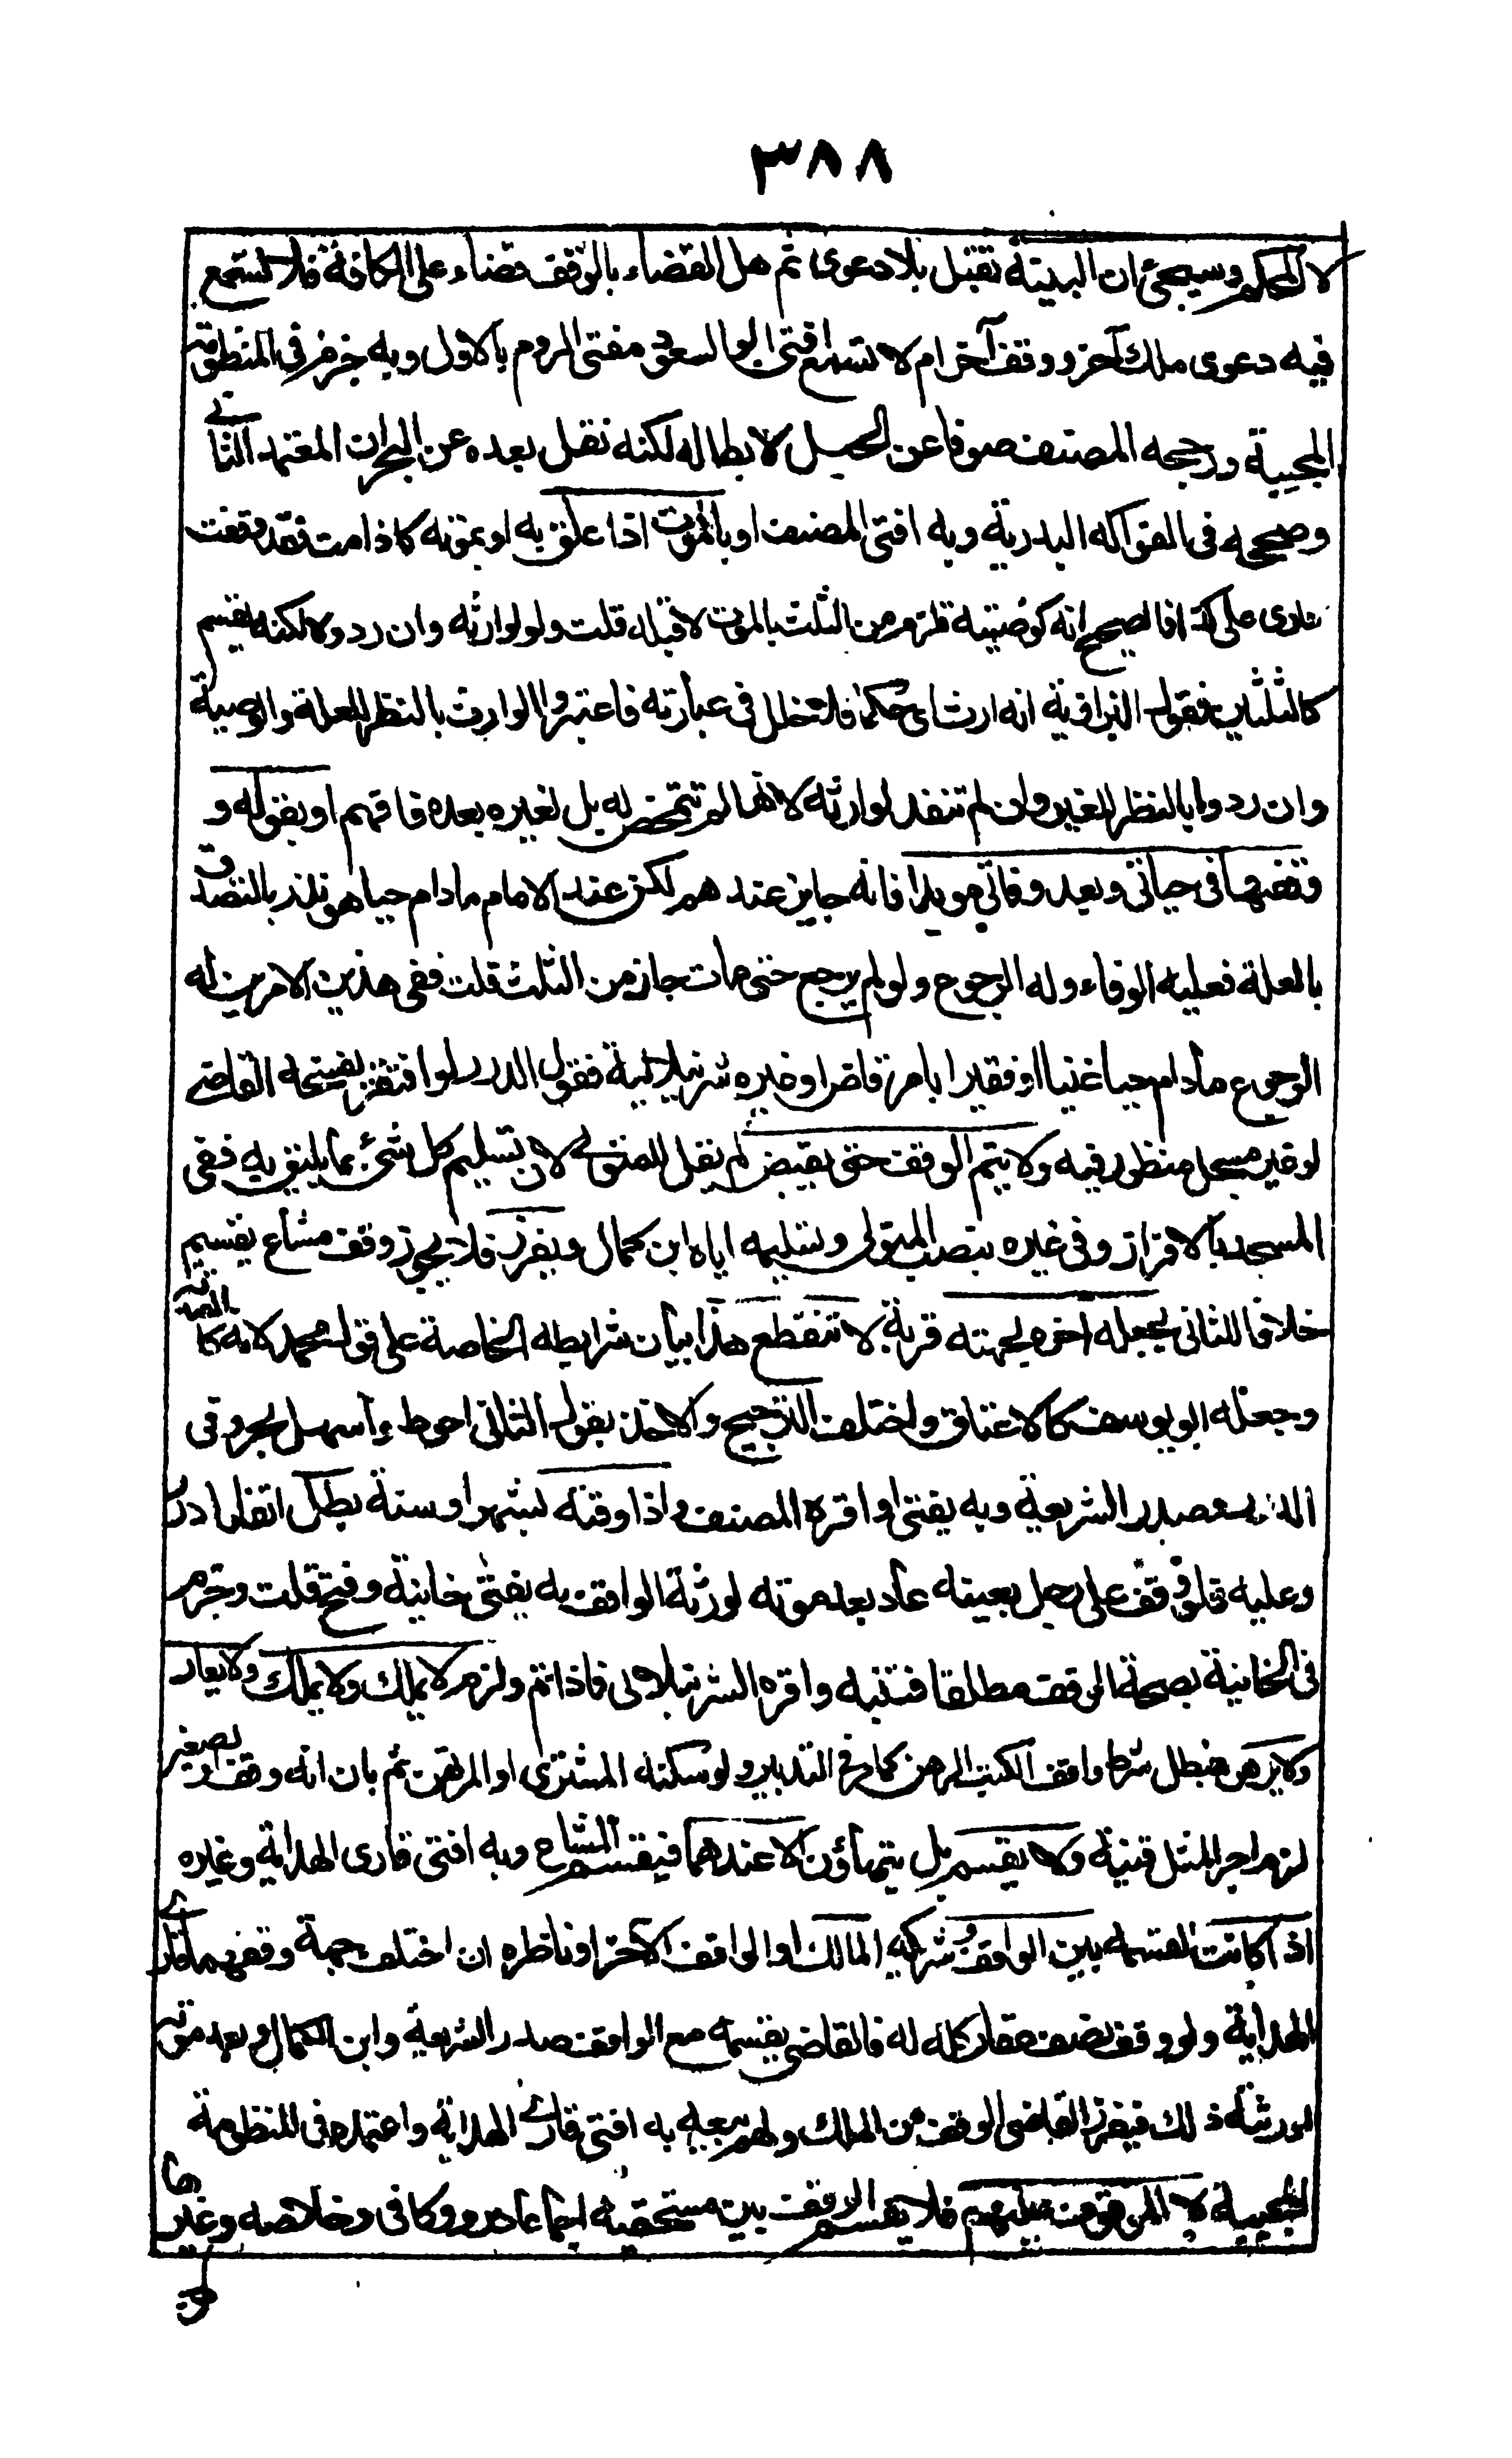 ٣٨٨
لا المحكم وسيجئ ان البينة تقبل بلا دعوى ثم هل القضاء بالوقف قضاء على الكافة فلا تسمع
فيه دعوى ملك آخر ووقف آخر ام لا تسمع افتى ابو السعود مفتى الروم بالاول وبه جزم فى المنظومة
المحبية ورجحه المصنف صونا عن الحيل لابطاله لكنه نقل بعده عن البحر ان المعتمد الثانى
وصححه فى الفواكه البدرية وبه افتى المصنف او بالموت اذا علق به او بموته كاذا مت فقد وقفت
دارى على كذا فالصحيح انه كوصية تلزم من الثلث بالموت لا قبله قلت ولو لوارثه وان ردوه لكنه يقسم
كالثلثين فقول البزازية انه ارث اى حكما فلا خلل فى عبارته فاعتبروا الوارث بالنظر للغلة والوصية
وان ردوا بالنظر للغير وان لم تنفذ لوارثه لانها لم تتمحض له بل لغيره بعده فافهم او بقوله و
وقفتها فى حياتى وبعد وفاتى موبدا فانه جايز عندهم لكن عند الامام مادام حيا هو نذر بالتصدق
بالغلة فعليه الوفاء وله الرجوع ولو لم يرجع حتى مات جاز من الثلث قلت ففى هذين الامرين له
الرجوع مادام حيا غنيا او فقيرا بامر قاض او غيره شرنبلالية فقول الدرر لو افتقر يفسخه القاضى
لو غير مسجل منظور فيه ولا يتم الوقف حتى يقبض لم يقل للمتولى لان تسليم كل شئ بما يليق به ففى
المسجد بالافراز وفى غيره بنصب المتولى وتسليمه اياه ابن كمال ويفرز فلا يجوز وقف مشاع يقسم
خلافا للثانى يجعل اخره لجهة قربة لا تنقطع هذا بيان شرايطه الخاصة على قول محمد لانه كالصدقة
وجعله ابو يوسف كالاعتاق واختلف الترجيح والاخذ بقول الثانى احوط واسهل بحر وفى
الدرر وصدر الشريعة وبه يفتى واقره المصنف واذا وقته بشهر او سنة بطل اتفاقا درر
وعليه فلو وقف على رجل بعينه عاد بعد موته لورثة الواقف به يفتى خانية وفتح قلت وجزم
فى الخانية بصحة الوقف مطلقا فتنبه واقره الشرنبلالى فاذا تم ولزم لا يملك ولا يملك ولا يعار
ولا يرهن فبطل شرط واقف الكتب الرهن كما فى التدبير ولو سكنه المشترى او المرتهن ثم بان انه وقف او لصغير
لزم اجر المثل قنية ولا يقسم بل يتهاؤن الا عندهما فيقسم المشاع وبه افتى قارى الهداية وغيره
اذا كانت القسمة بين الواقف وشريكه المالك او الواقف الآخر او ناظره ان اختلف جهة وقفهما قارى
الهداية ولو وقف نصف عقار كله له فالقاضى يقسمه مع الواقف صدر الشريعة وابن الكمال وبعد موته
لورثته ذلك فيفرز القاضى الوقف من الملك ولهم بيعه به افتى قارى الهداية واعتمده فى المنظومة
المحبية لا الموقوف عليهم فلا يقسم الوقف بين مستحقيه اجماعا درر وكافى وخلاصه وغيرها